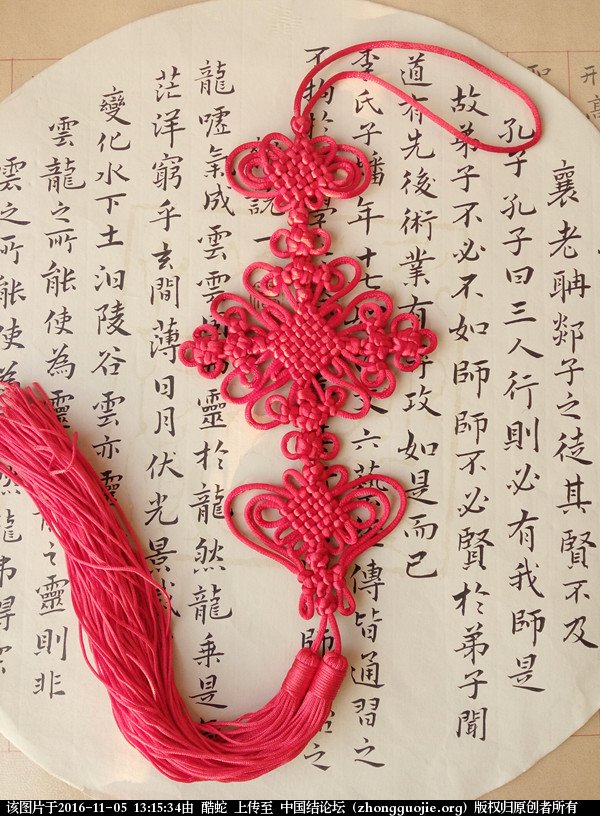 襄老聃郯子之徒其賢不及
孔子孔子曰三人行則必有我師是
故弟子不必不如師師不必賢於弟子聞
道有先後術業有攻如是而已
李氏子蟠年十七六藝傳皆通習之
不拘於學師之
說一
龍噓氣成雲雲靈於龍然龍乘是
茫洋窮乎玄間薄日月伏光景
變化水下土汩陵谷雲亦靈
雲龍之所能使為靈之靈則非
雲之所能使為然龍弗得雲
该图片于2016-11-05 13:15:34由 酷蛇 上传至 中国结论坛 (zhongguojie.org) 版权归原创者所有